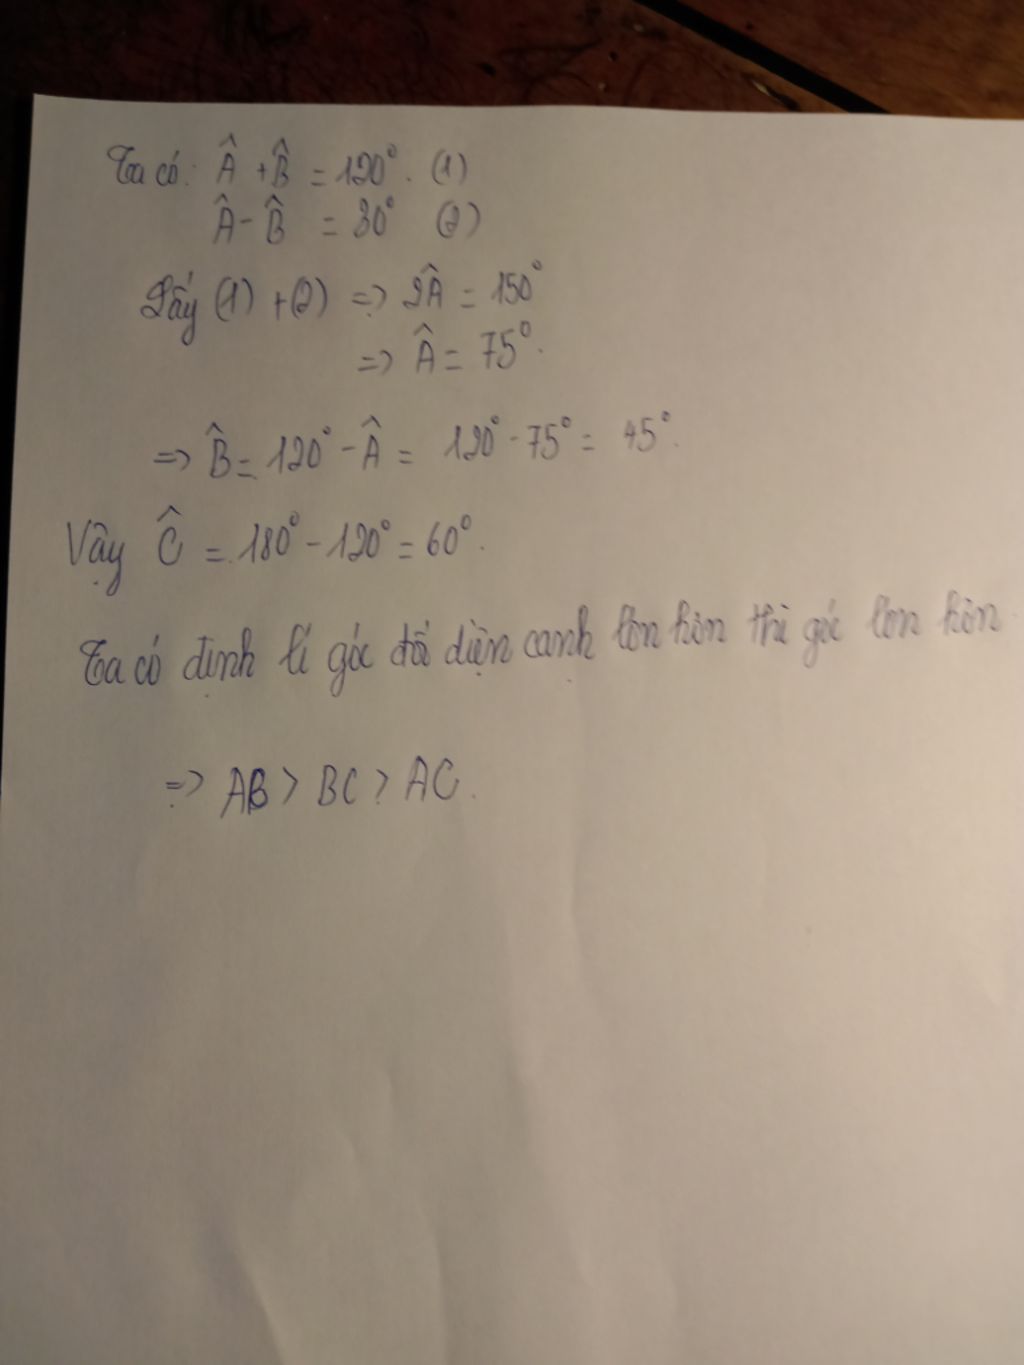 Ta có: Â + B̂ = 120°. (1)
Â - B̂ = 30° (2)
Lấy (1) + (2) => 2Â = 150°
=> Â = 75°.
=> B̂ = 120° - Â = 120° - 75° = 45°.
Vậy Ĉ = 180° - 120° = 60°.
Ta có định lí góc đối diện cạnh lớn hơn thì góc lớn hơn
=> AB > BC > AC.